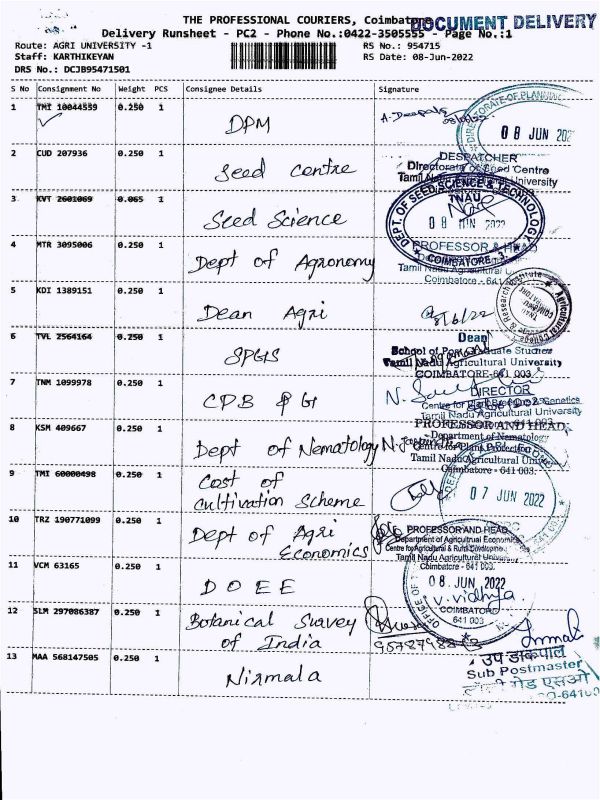 THE PROFESSIONAL COURIERS, Coimbatore
DOCUMENT DELIVERY
Delivery Runsheet - PC2 - Phone No.:0422-3505555 - Page No.:1
Route: AGRI UNIVERSITY -1
RS No.: 954715
Staff: KARTHIKEYAN
RS Date: 08-Jun-2022
DRS No.: DCJB95471501
S No Consignment No Weight PCS Consignee Details Signature
1 TMI 10044559 0.250 1 DPM
DIRECTORATE OF PLANNING
08 JUN 202
2 CUD 207936 0.250 1 Seed Centre
DESPATCHER
Directorate of Seed Centre
Tamil Nadu Agricultural University
3 KVT 2601069 0.065 1 Seed Science
DEPT. OF SEED SCIENCE & TECHNOLOGY
TNAU
08 JUN 2022
COIMBATORE
4 MTR 3095006 0.250 1 Dept of Agronomy
PROFESSOR & HEAD
Tamil Nadu Agricultural
Coimbatore - 641
5 KDI 1389151 0.250 1 Dean Agri
8/6/22
Agricultural College & Research Institute
6 TVL 2564164 0.250 1 SPGS
Dean
School of Post Graduate Studies
Tamil Nadu Agricultural University
COIMBATORE-641 003
7 TNM 1099978 0.250 1 CPB & G
DIRECTOR
Centre for Plant Breeding & Genetics
Tamil Nadu Agricultural University
8 KSM 409667 0.250 1 Dept of Nematology
PROFESSOR AND HEAD
Department of Nematology
Centre for Plant Protection
Tamil Nadu Agricultural
Coimbatore - 641 003.
9 TMI 60000498 0.250 1 Cost of
Cultivation Scheme
07 JUN 2022
10 TRZ 190771099 0.250 1 Dept of Agri
Economics
PROFESSOR AND HEAD
Department of Agricultural Economics
Centre for Agricultural & Rural Development
Tamil Nadu Agricultural University
Coimbatore - 641 003.
11 VCM 63165 0.250 1 DOEE
08 JUN 2022
V. Vidhya
COIMBATORE
641 003
12 SLM 297086387 0.250 1 Botanical Survey
of India
13 MAA 568147505 0.250 1 Nirmala
Nirmala
उप डाकपाल
Sub Postmaster